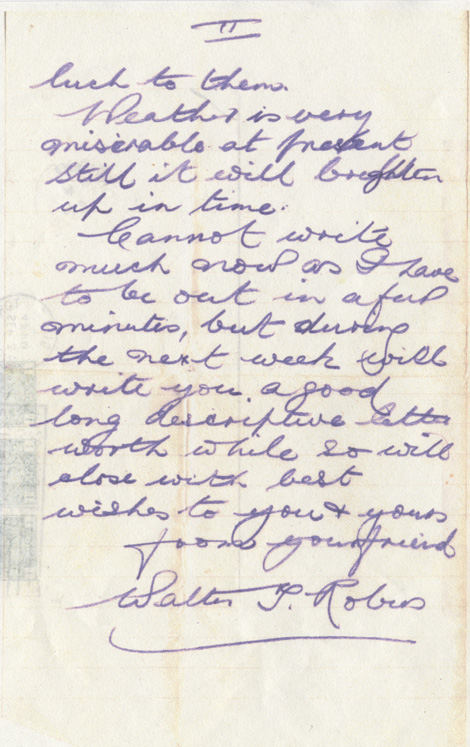 II
luck to them.
Weather is very
miserable at present
still it will brighten
up in time.
Cannot write
much now as I have
to be out in a few
minutes, but during
the next week will
write you a good
long descriptive letter
worth while so will
close with best
wishes to you & yours
from your friend
Walter